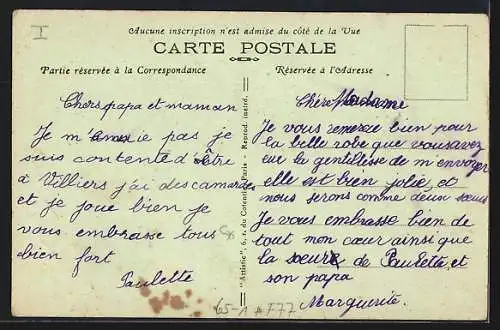 I
Aucune inscription n'est admise du côté de la Vue
CARTE POSTALE
Partie réservée à la Correspondance
Réservée à l'Adresse
Chers papa et maman
Je m'ennuie pas je
suis contente d'être
à Villiers j'ai des camarades
et je joue bien je
vous embrasse tous
bien fort
Paulette
"Artistic" 6, r. du Cotentin, Paris - Reprod. interd.
Chère Madame
Je vous remercie bien pour
la belle robe que vous avez
eue la gentillesse de m'envoyer
elle est bien jolie, et
nous serons comme deux sœurs
Je vous embrasse bien de
tout mon cœur ainsi que
la sœur de Paulette et
son papa
Marguerite.
65-1 F77